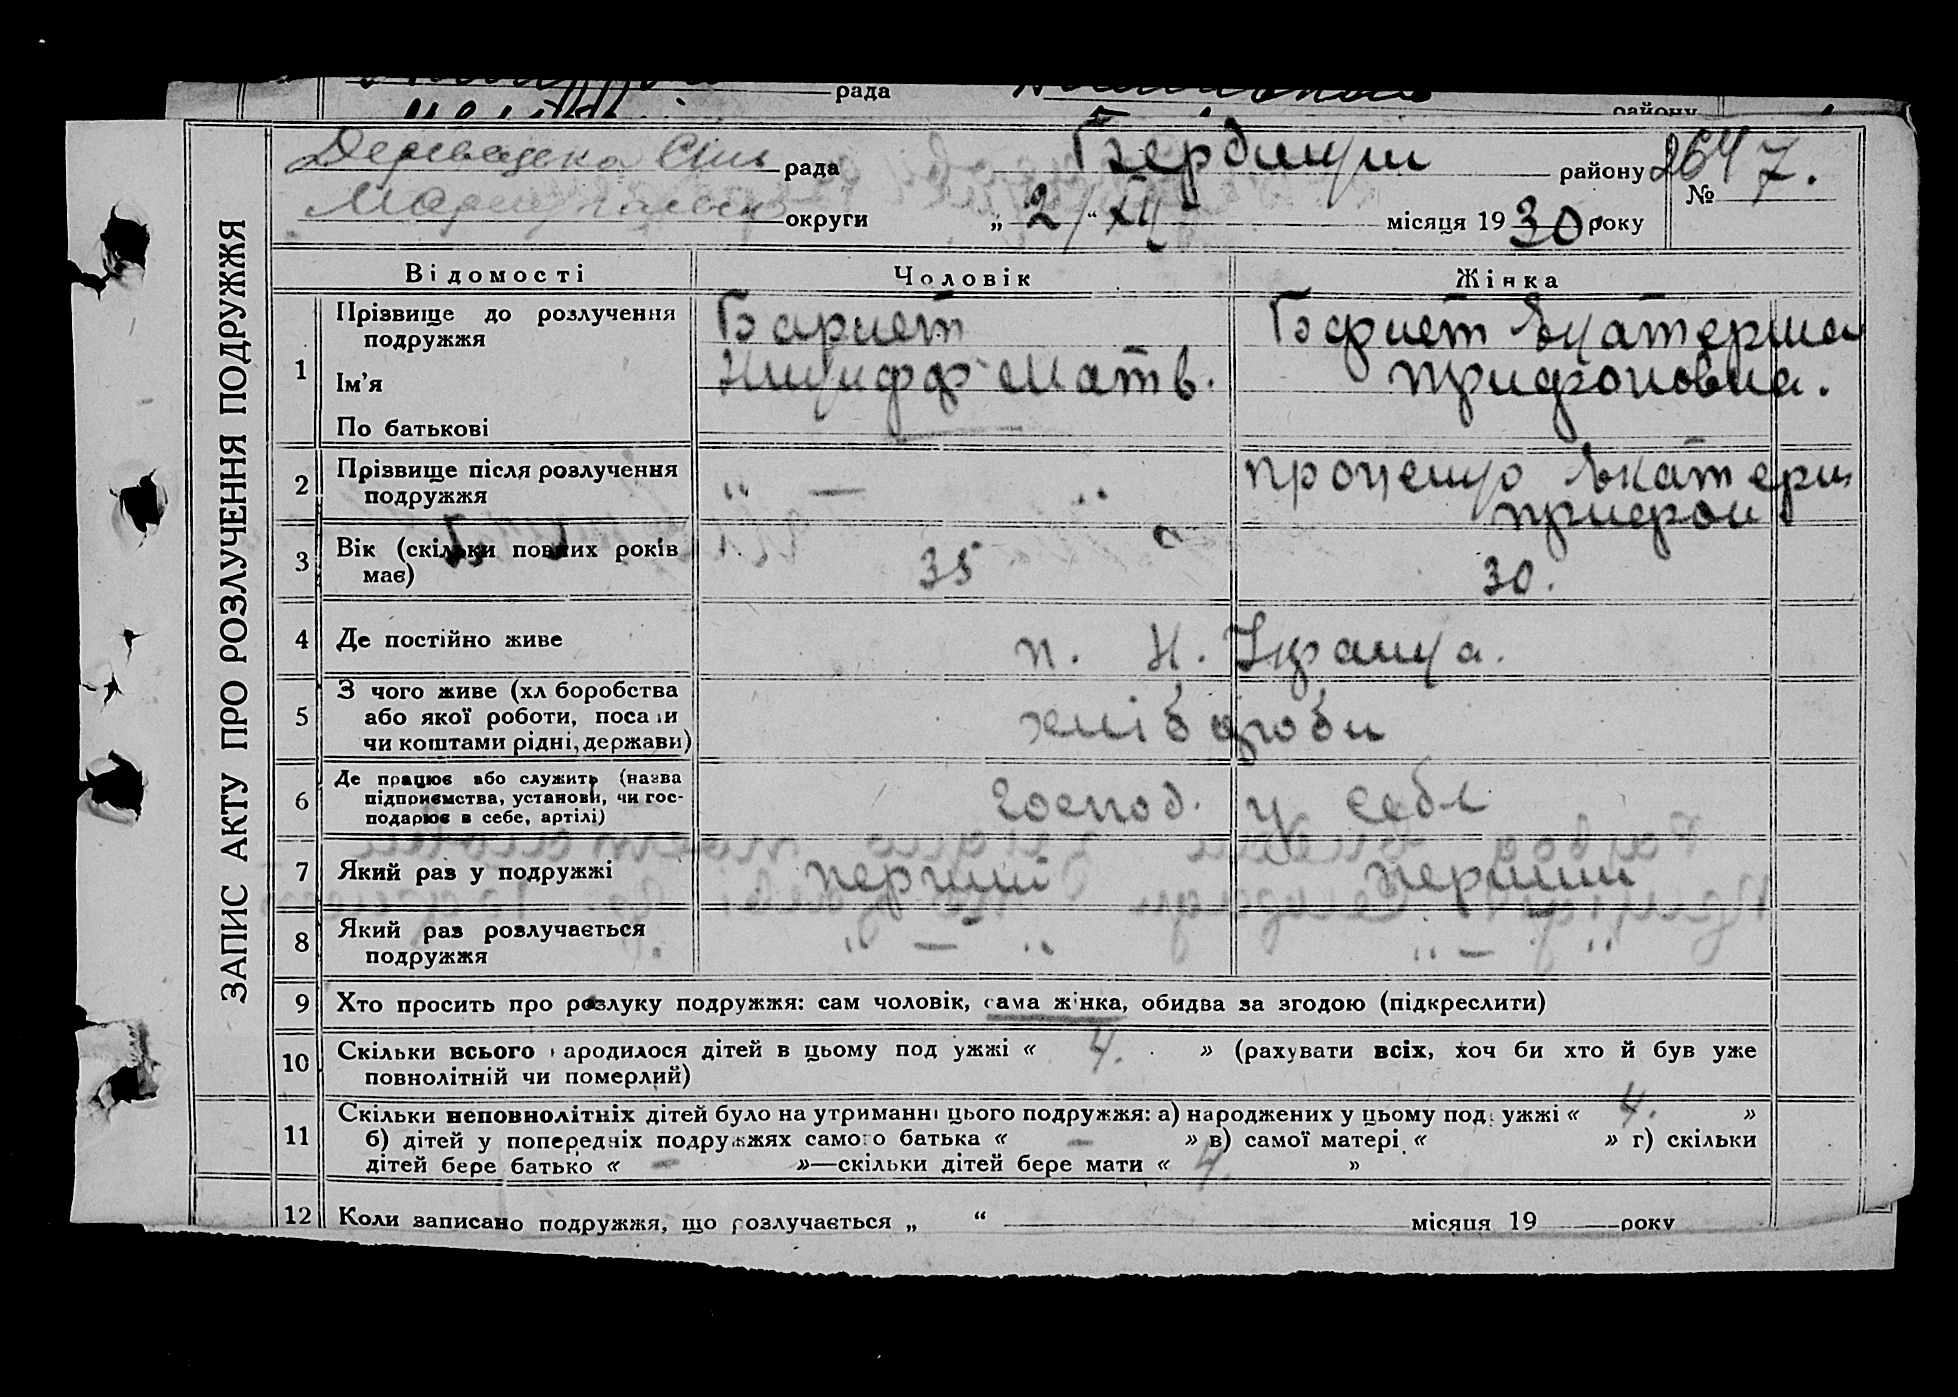 рада
району
рада
Бердянський району
№ 2647.
округи
„ 2 “ XII місяця 1930 року
ЗАПИС АКТУ ПРО РОЗЛУЧЕННЯ ПОДРУЖЖЯ
Відомості Чоловік Жінка
1 Прізвище до розлучення подружжя
Ім’я
По батькові
Матв.
Екатерина
Трифоновна.
2 Прізвище після розлучення подружжя
" — "
Проценко Екатерин
Трифон
3 Вік (скільки повних років має)
35 30.
4 Де постійно живе
п. Н.
5 З чого живе (хліборобства або якої роботи, посади чи коштами рідні, держави)
хліборобы
6 Де працює або служить (назва підприємства, установи, чи господарює в себе, артілі)
господ. у себе
7 Який раз у подружжі
перший перший
8 Який раз розлучається подружжя
" — " " — "
9 Хто просить про розлуку подружжя: сам чоловік, сама жінка, обидва за згодою (підкреслити)
10 Скільки всього народилося дітей в цьому подружжі « 4. » (рахувати всіх, хоч би хто й був уже
повнолітній чи померлий)
11 Скільки неповнолітніх дітей було на утриманні цього подружжя: а) народжених у цьому подружжі « 4. »
б) дітей у попередніх подружжях самого батька « – » в) самої матері « » г) скільки
дітей бере батько « – »—скільки дітей бере мати « 4. »
12 Коли записано подружжя, що розлучається „ “ місяця 19 року